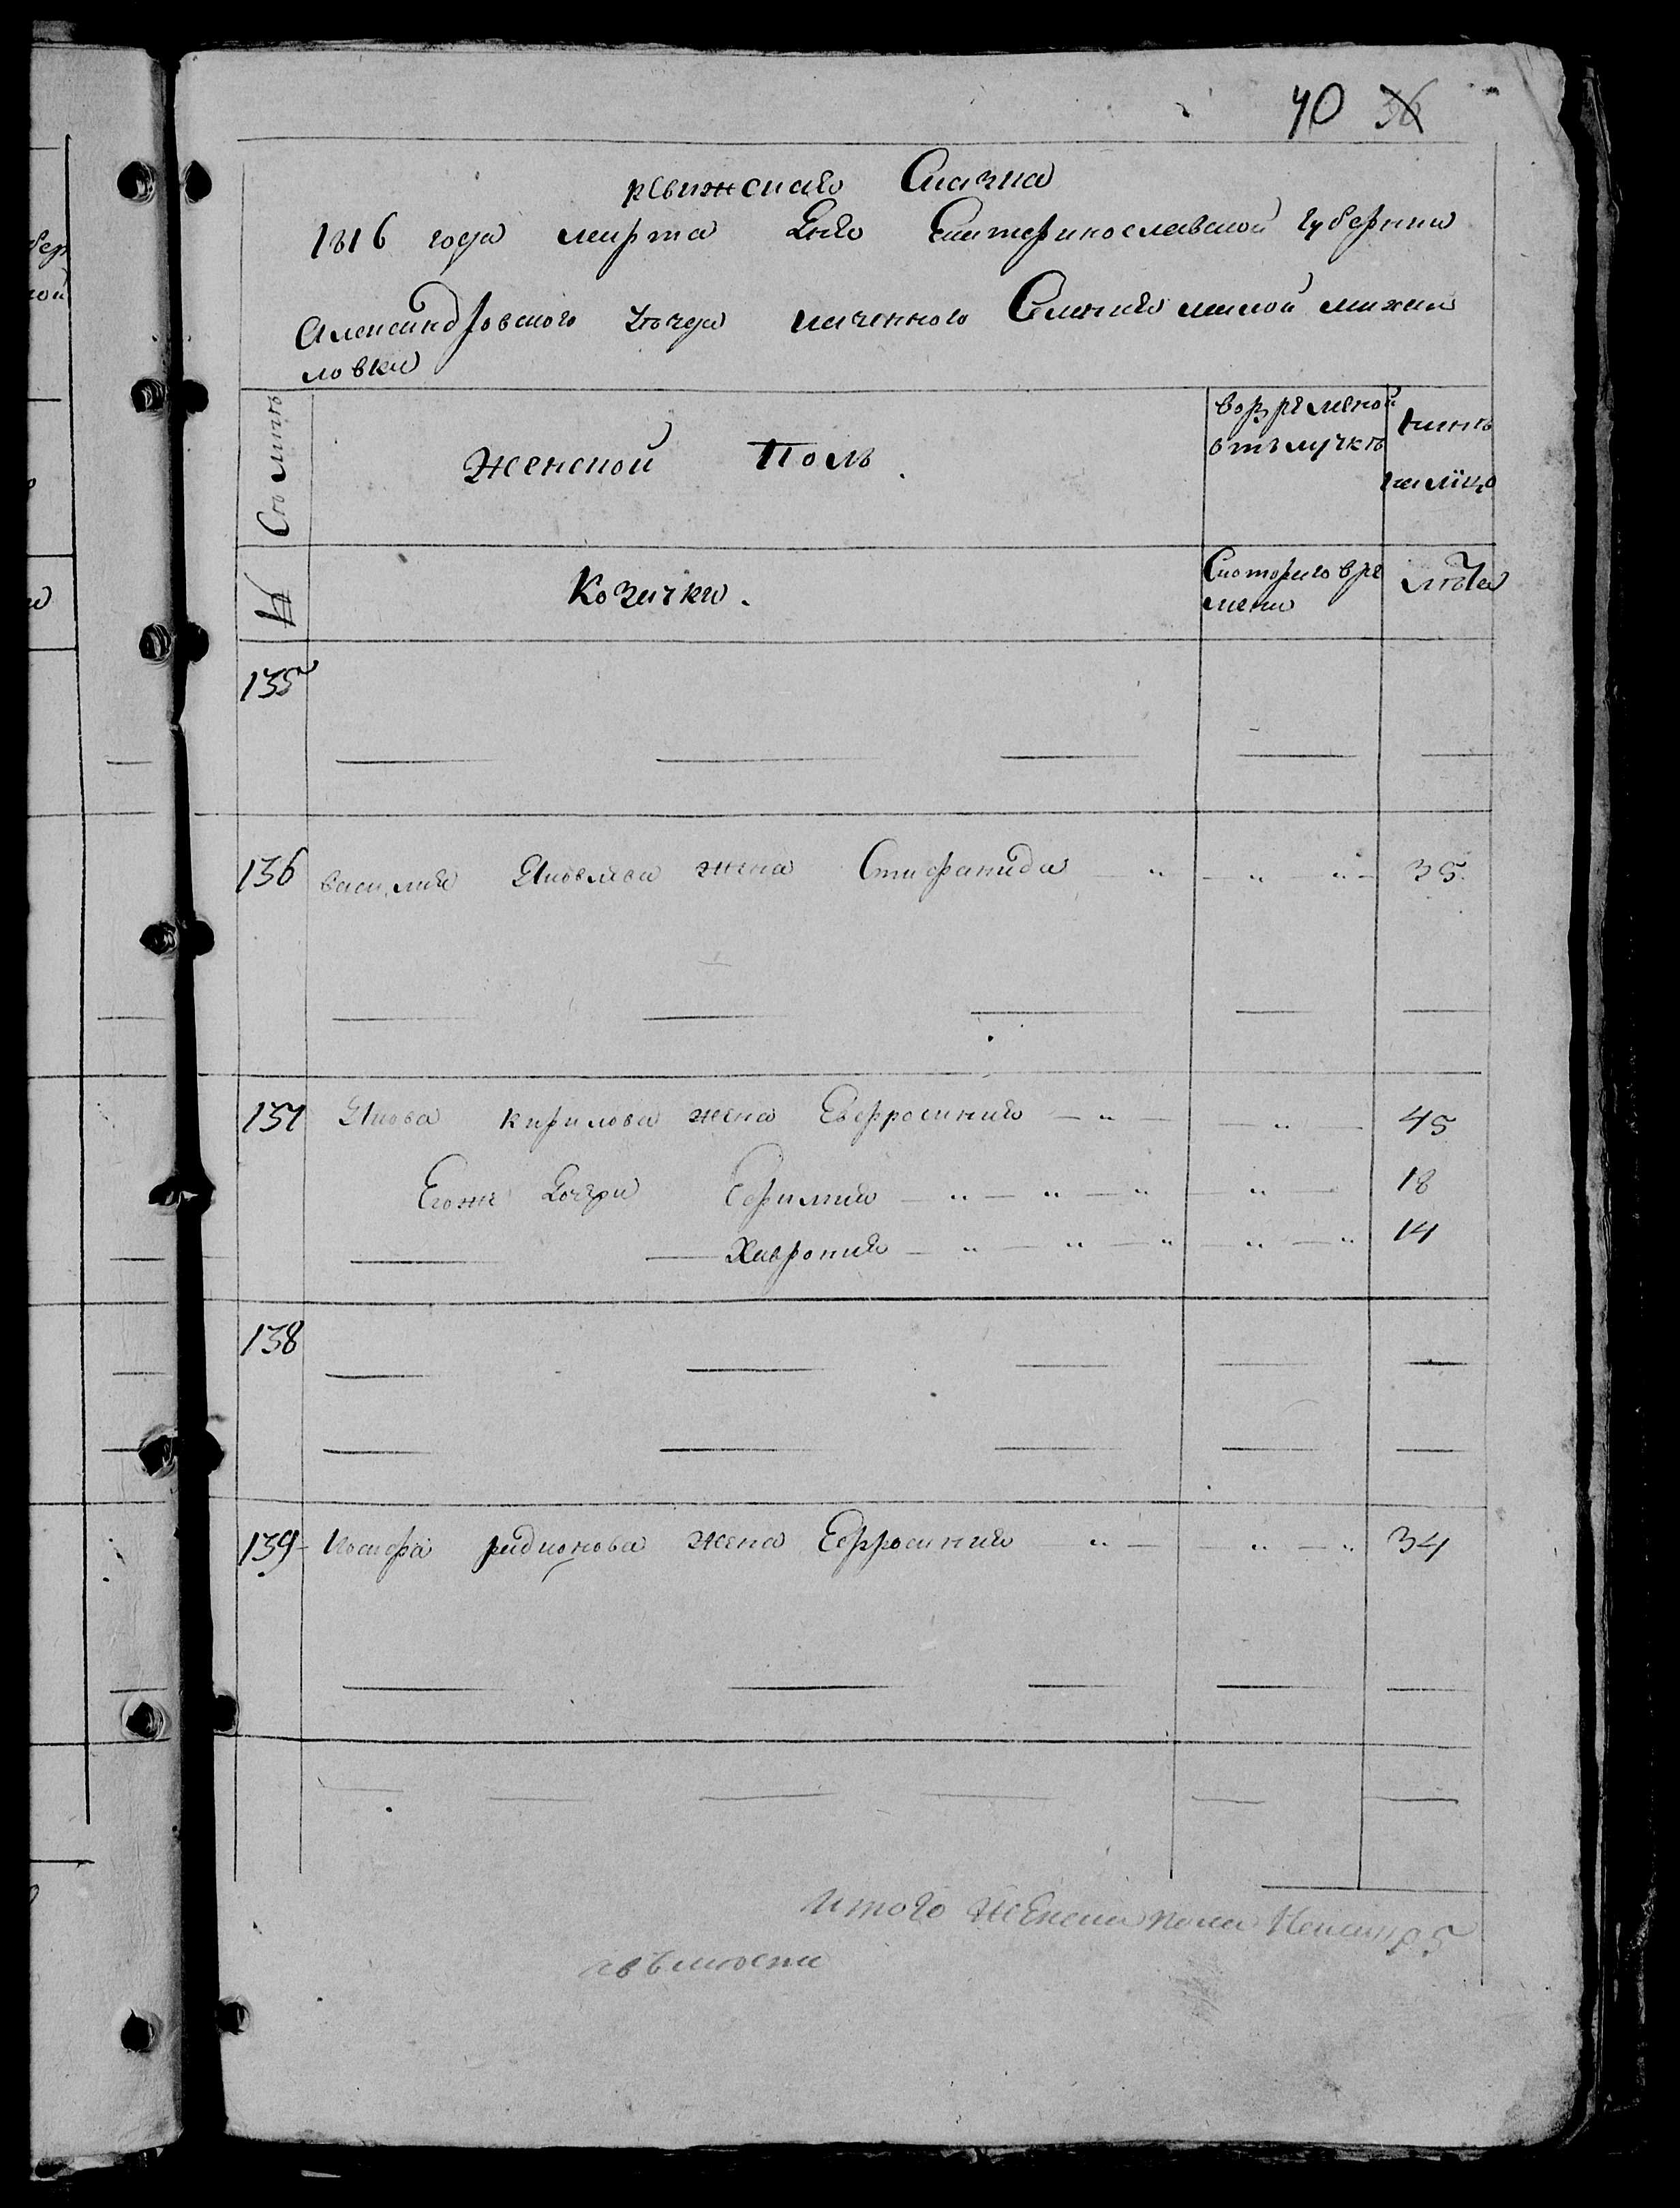 40 36
ревижская Сказка
1816 года марта дня Екатеринославской губернии
Александровского уезда казенного Селения малой михай
ловки
Семьи
женской Полъ.
во временной
отълучкѣ
нынѣ
на лицо
№
Козачки.
Скоторого вре
мени
лѣта
135
136 василия Яковлева жена Стефанида — „ — „ „ — 35
137 Якова Кирилова жена Евфросиния — „ — — „ — 45
Егоже дочери Ефимия — „ — „ — „ — „ — 18
Хаврония — „ — „ — „ — „ — „ 14
138
139 Иосифа радионова жена Ефросиния „ — „ — „ 34
Итого женска пола 5